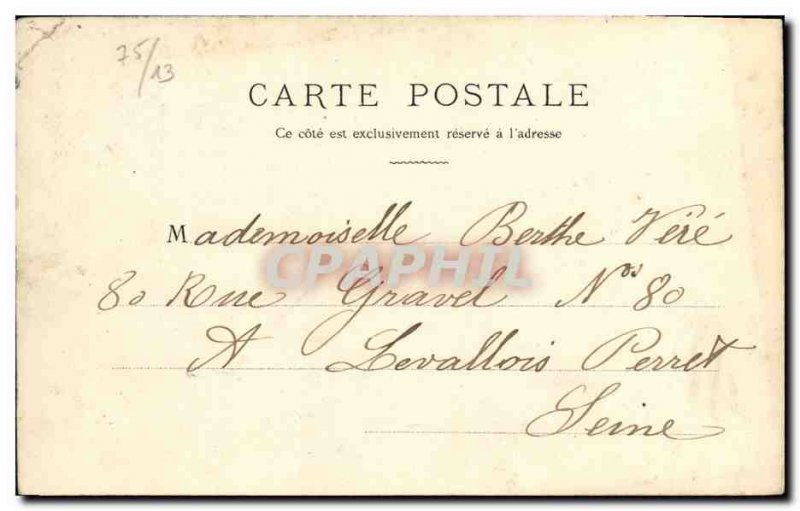 75/13
CARTE POSTALE
Ce côté est exclusivement réservé à l'adresse
Mademoiselle Berthe Véré
CPAPHIL
80 Rue Gravel Nos 80
A Levallois Perret
Seine